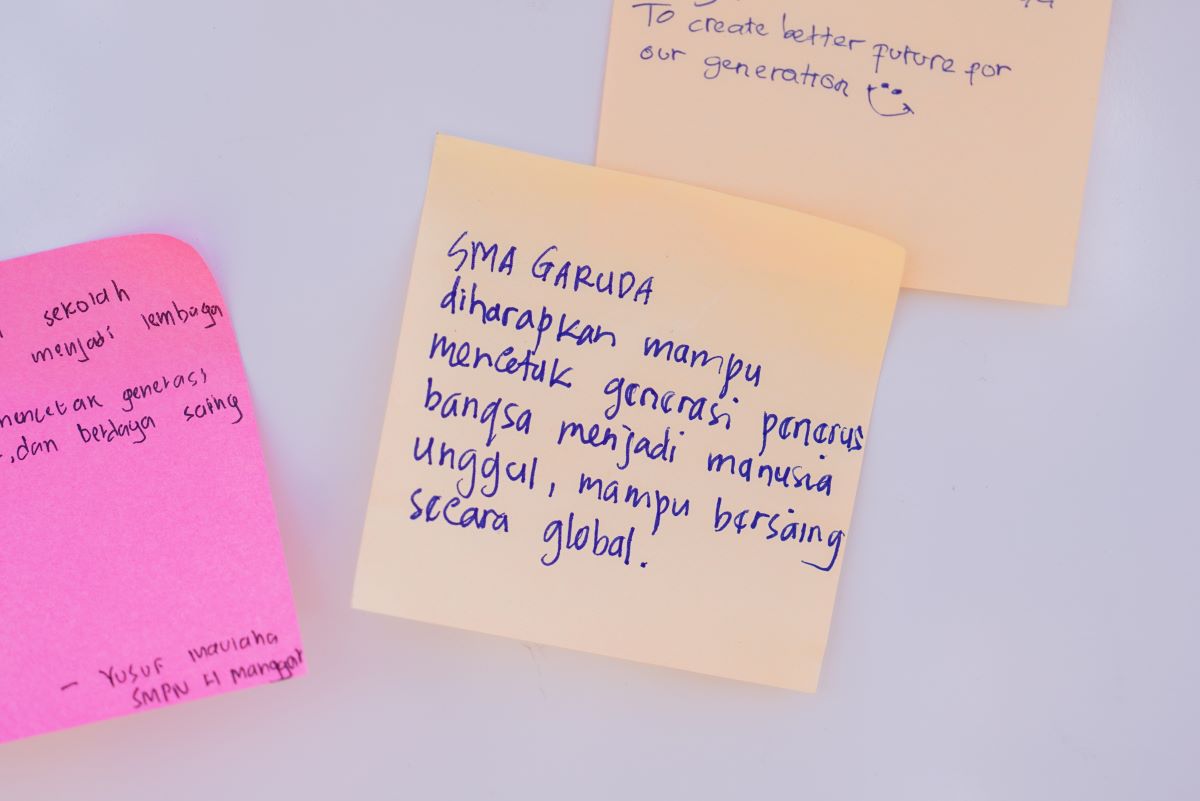 To create better future for
our generation
SMA GARUDA
diharapkan mampu
mencetak generasi penerus
bangsa menjadi manusia
unggul, mampu bersaing
secara global.
sekolah
menjadi lembaga
mencetak generasi
, dan berdaya saing
- Yusuf maulaha
SMPN 41 Manggar